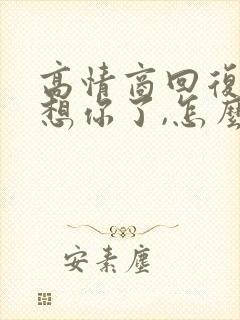 高情商回復
想你了,怎麼
安素塵